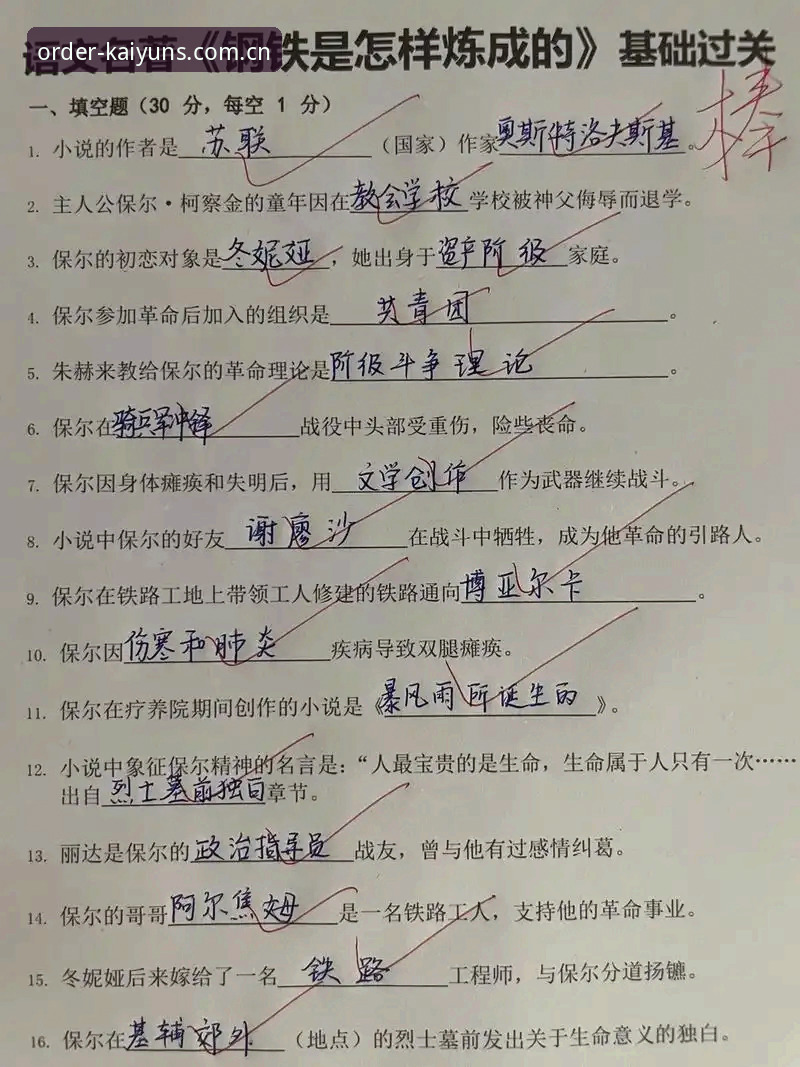 order-kaiyuns.com.cn
语文名著《钢铁是怎样炼成的》基础过关
一、填空题(30 分，每空 1 分)
棒
1. 小说的作者是 苏联 (国家)作家 奥斯特洛夫斯基。
2. 主人公保尔·柯察金的童年因在 教会学校 学校被神父侮辱而退学。
3. 保尔的初恋对象是 冬妮娅，她出身于 资产阶级 家庭。
4. 保尔参加革命后加入的组织是 共青团。
5. 朱赫来教给保尔的革命理论是 阶级斗争理论。
6. 保尔在 骑兵军冲锋 战役中头部受重伤，险些丧命。
7. 保尔因身体瘫痪和失明后，用 文学创作 作为武器继续战斗。
8. 小说中保尔的好友 谢廖沙 在战斗中牺牲，成为他革命的引路人。
9. 保尔在铁路工地上带领工人修建的铁路通向 博亚尔卡。
10. 保尔因 伤寒和肺炎 疾病导致双腿瘫痪。
11. 保尔在疗养院期间创作的小说是《暴风雨所诞生的》。
12. 小说中象征保尔精神的名言是：“人最宝贵的是生命，生命属于人只有一次……
出自 烈士墓前独白 章节。
13. 丽达是保尔的 政治指导员 战友，曾与他有过感情纠葛。
14. 保尔的哥哥 阿尔焦姆 是一名铁路工人，支持他的革命事业。
15. 冬妮娅后来嫁给了一名 铁路 工程师，与保尔分道扬镳。
16. 保尔在 基辅郊外 (地点)的烈士墓前发出关于生命意义的独白。